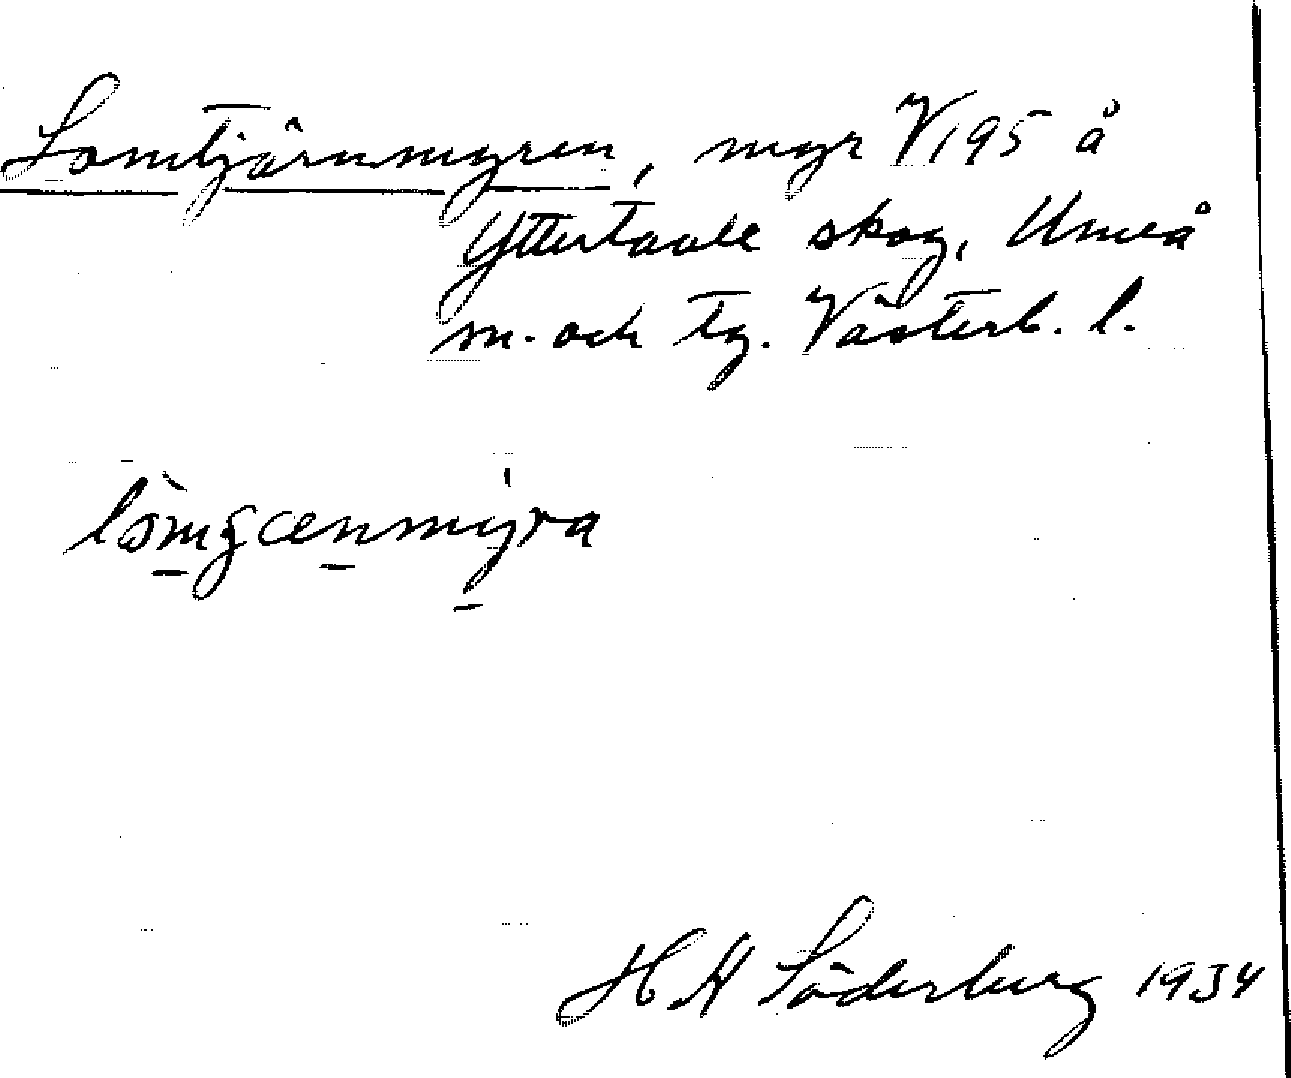 Lomtjärnmyren, myr V195 å
Yttertavle skog, Umeå
sn. och tg. Västerb. l.
H H Söderberg 1934